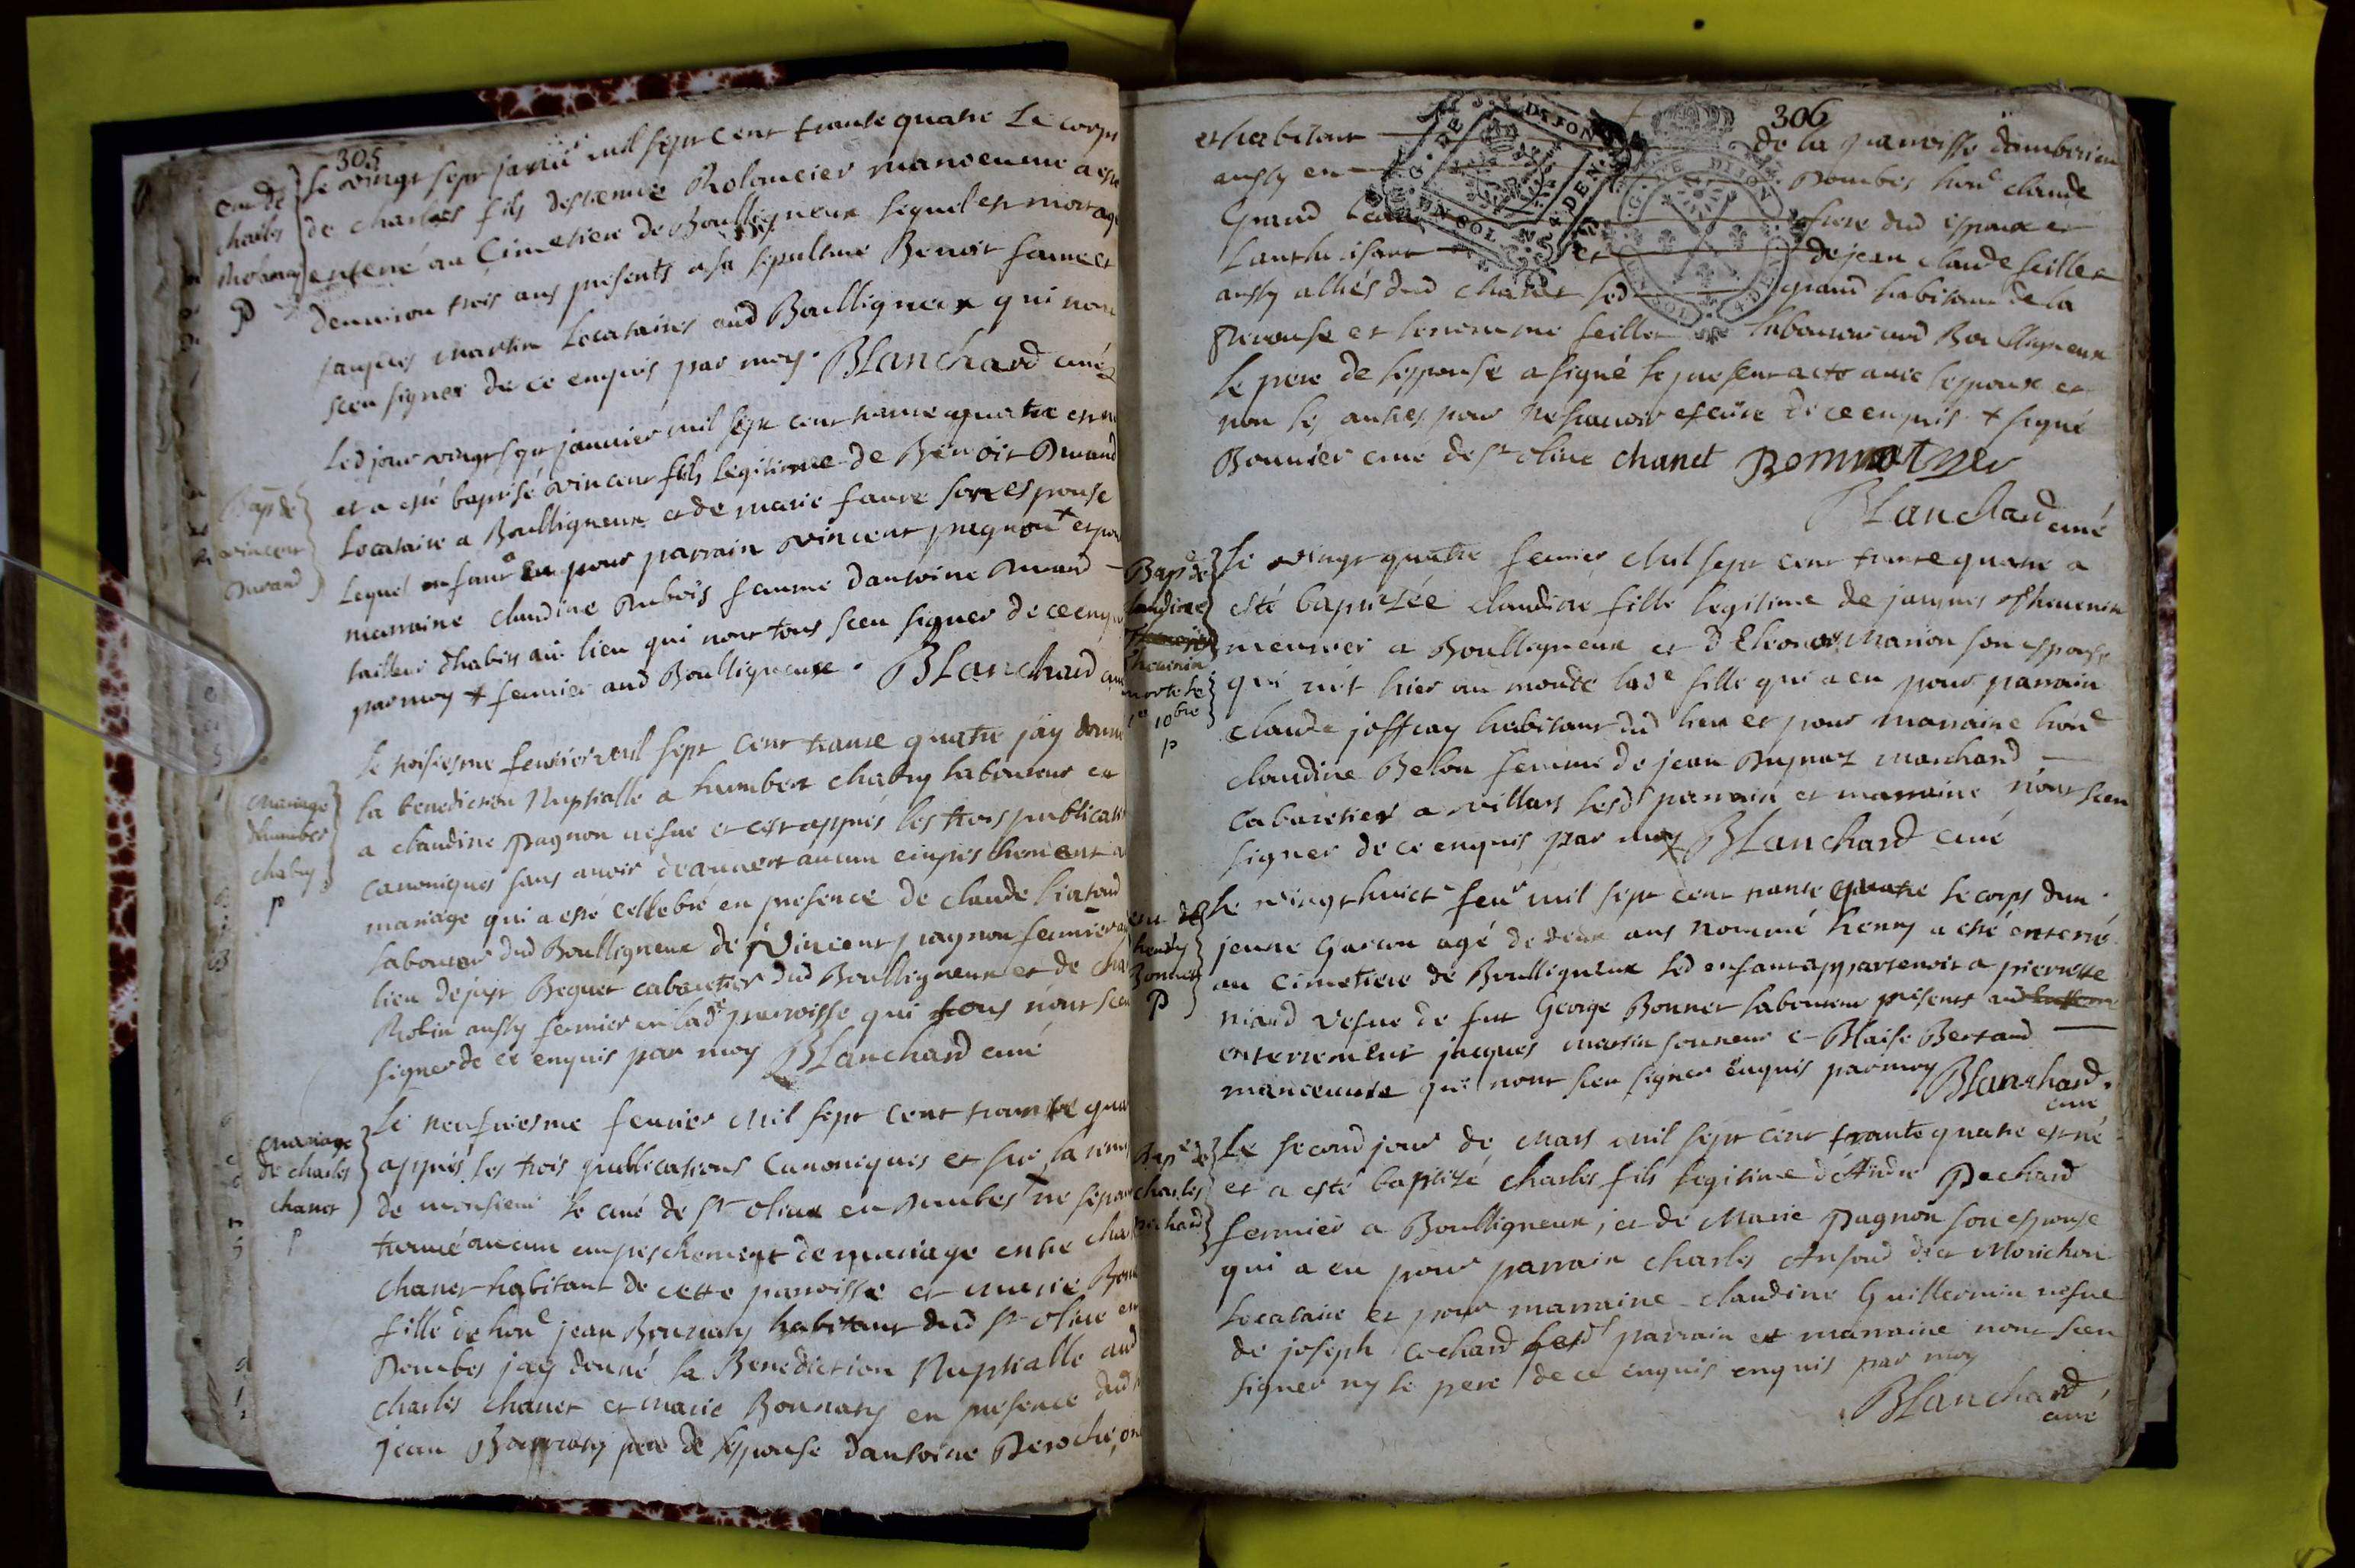 305
Le vingt sept janvie mil sept cent trante quatre Le corps
de charles fils destienne Rolancier manoeuvre a esté
enterré au Cimetiere de Boulligneux lequel est mort agé
denviron trois ans presents a sa sepulture Benoit faure et
jacques martin Locataires aud Boulligneux qui nont
sceu signer de ce enquis par moy. Blanchard curé
Led jour vingt sept janvier mil sept cent trante quatre est né
Bap de
vincent
Durand
et a esté baptisé vincent fils legitime de Benoit Durand
Locataire a Boulligneux et de marie faure son espouse
Lequel enfant a eu pour parrain vincent pagnon + et pour
marraine claudine Dubois femme dantoine Durand
tailleur dhabits aud lieu qui nont tous sceu signer de ce enquis
par moy + fermier aud Boulligneux. Blanchard curé
mariage
dhumbert
chabry
p
Le troisiesme fevrier mil sept cent trante quatre jay donné
la benediction Nuptialle a humbert chabry laboureur et
a claudine Pagnon vefue et cest appres les trois publications
canoniques sans avoir decouvert aucun empeschement a
mariage qui a esté cellebré en presence de claude
laboureur dud Boulligneux de Vincent pagnon fermier aud
lieu de Beguet cabaretier dud Boulligneux et de
Robin aussy fermier en lade parroisse qui tous nont sceu
signer de ce enquis par moy Blanchard curé
mariage
de charles
chanet
p
Le neufviesme fevrier mil sept cent trante quatre
appres les trois publications Canoniques et sur la
de monsieur le curé de st olive en Dombes ne
trouvé aucun empeschement de mariage entre
chanet habitant de cette parroisse et marie
fille de hond jean Bonnary habitant dud st olive en
Dombes jay donné la Benediction Nuptialle aud
charles chanet et marie Bonnary en presence dud
jean Bonnary pere de lespouse dantoine Deroche
306
et habitant de la parroisse
aussy en Dombes hond claude
Grand frere dud espoux et
et de jean claude feillet
aussy alliés dud chanet led grand habitant de la
Perouse et le nommé feillet laboureur aud Boulligneux
Le pere de lespouse a signé le present acte avec lespoux et
non les autres pour ne scavoir escrire de ce enquis + signé
Bonnier curé de st olive chanet
Blanchard curé
Bap de
Claudine
thevenin
morte le
1er 10bre
p
Le vingt quatre fevrier Mil sept cent trante quatre a
esté baptisée Claudine fille legitime de jacques thevenin
meunier a Boulligneux et dEleonor Marion son espouse
qui nit hier au monde lade fille qui a eu pour parrain
claude joffray habitant dud lieu et pour marraine hond
claudine Belon femme de jean marchand
cabaretier a villars lesd parrain et marraine nont sceu
signer de ce enquis par moy Blanchard curé
henry
Bonnet
P
Le vingt huict fevr mil sept cent trante quatre le corps dun
jeune Garcon agé de deux ans nommé henry a esté enterré
au Cimetiere de Boulligneux led enfant appartenoit a pierrette
niard vefue de feu George Bonnet laboureur presents aud
enterrement jacques martin sonneur et Blaise Bertand
manoeuvre qui nont sceu signer enquis par moy Blanchard
curé
Bap de
charles
Pechard
Le second jour de Mars mil sept cent trante quatre est né
et a esté baptizé charles fils legitime dAndre Pechard
fermier a Boulligneux, et de Marie Pagnon son espouse
qui a eu pour parrain charles dict Morichon
Locataire et pour marraine claudine Guillermin vefue
de joseph Cochard lesd parrain et marraine nont sceu
signer ny le pere de ce enquis enquis par moy
Blanchard
curé